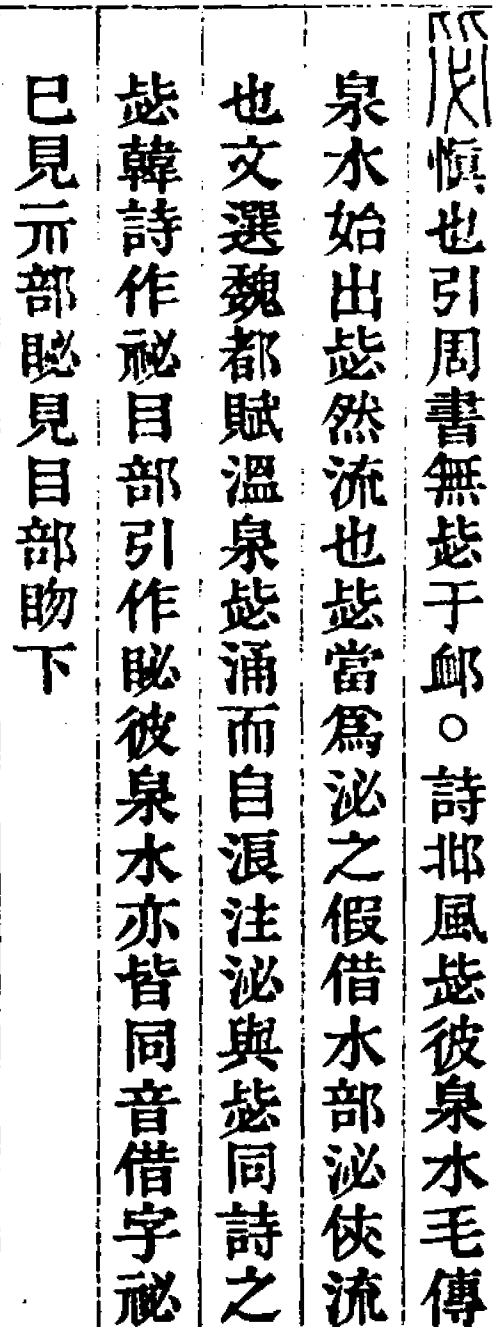 毖愼也引周書無毖于卹○詩邶風毖彼泉水毛傳
泉水始出毖然流也毖當爲泌之假借水部泌俠流
也文選魏都賦溫泉毖涌而自浪注泌與毖同詩之
毖韓詩作祕目部引作䀣彼泉水亦皆同音借字祕
已見示部䀣見目部眆下